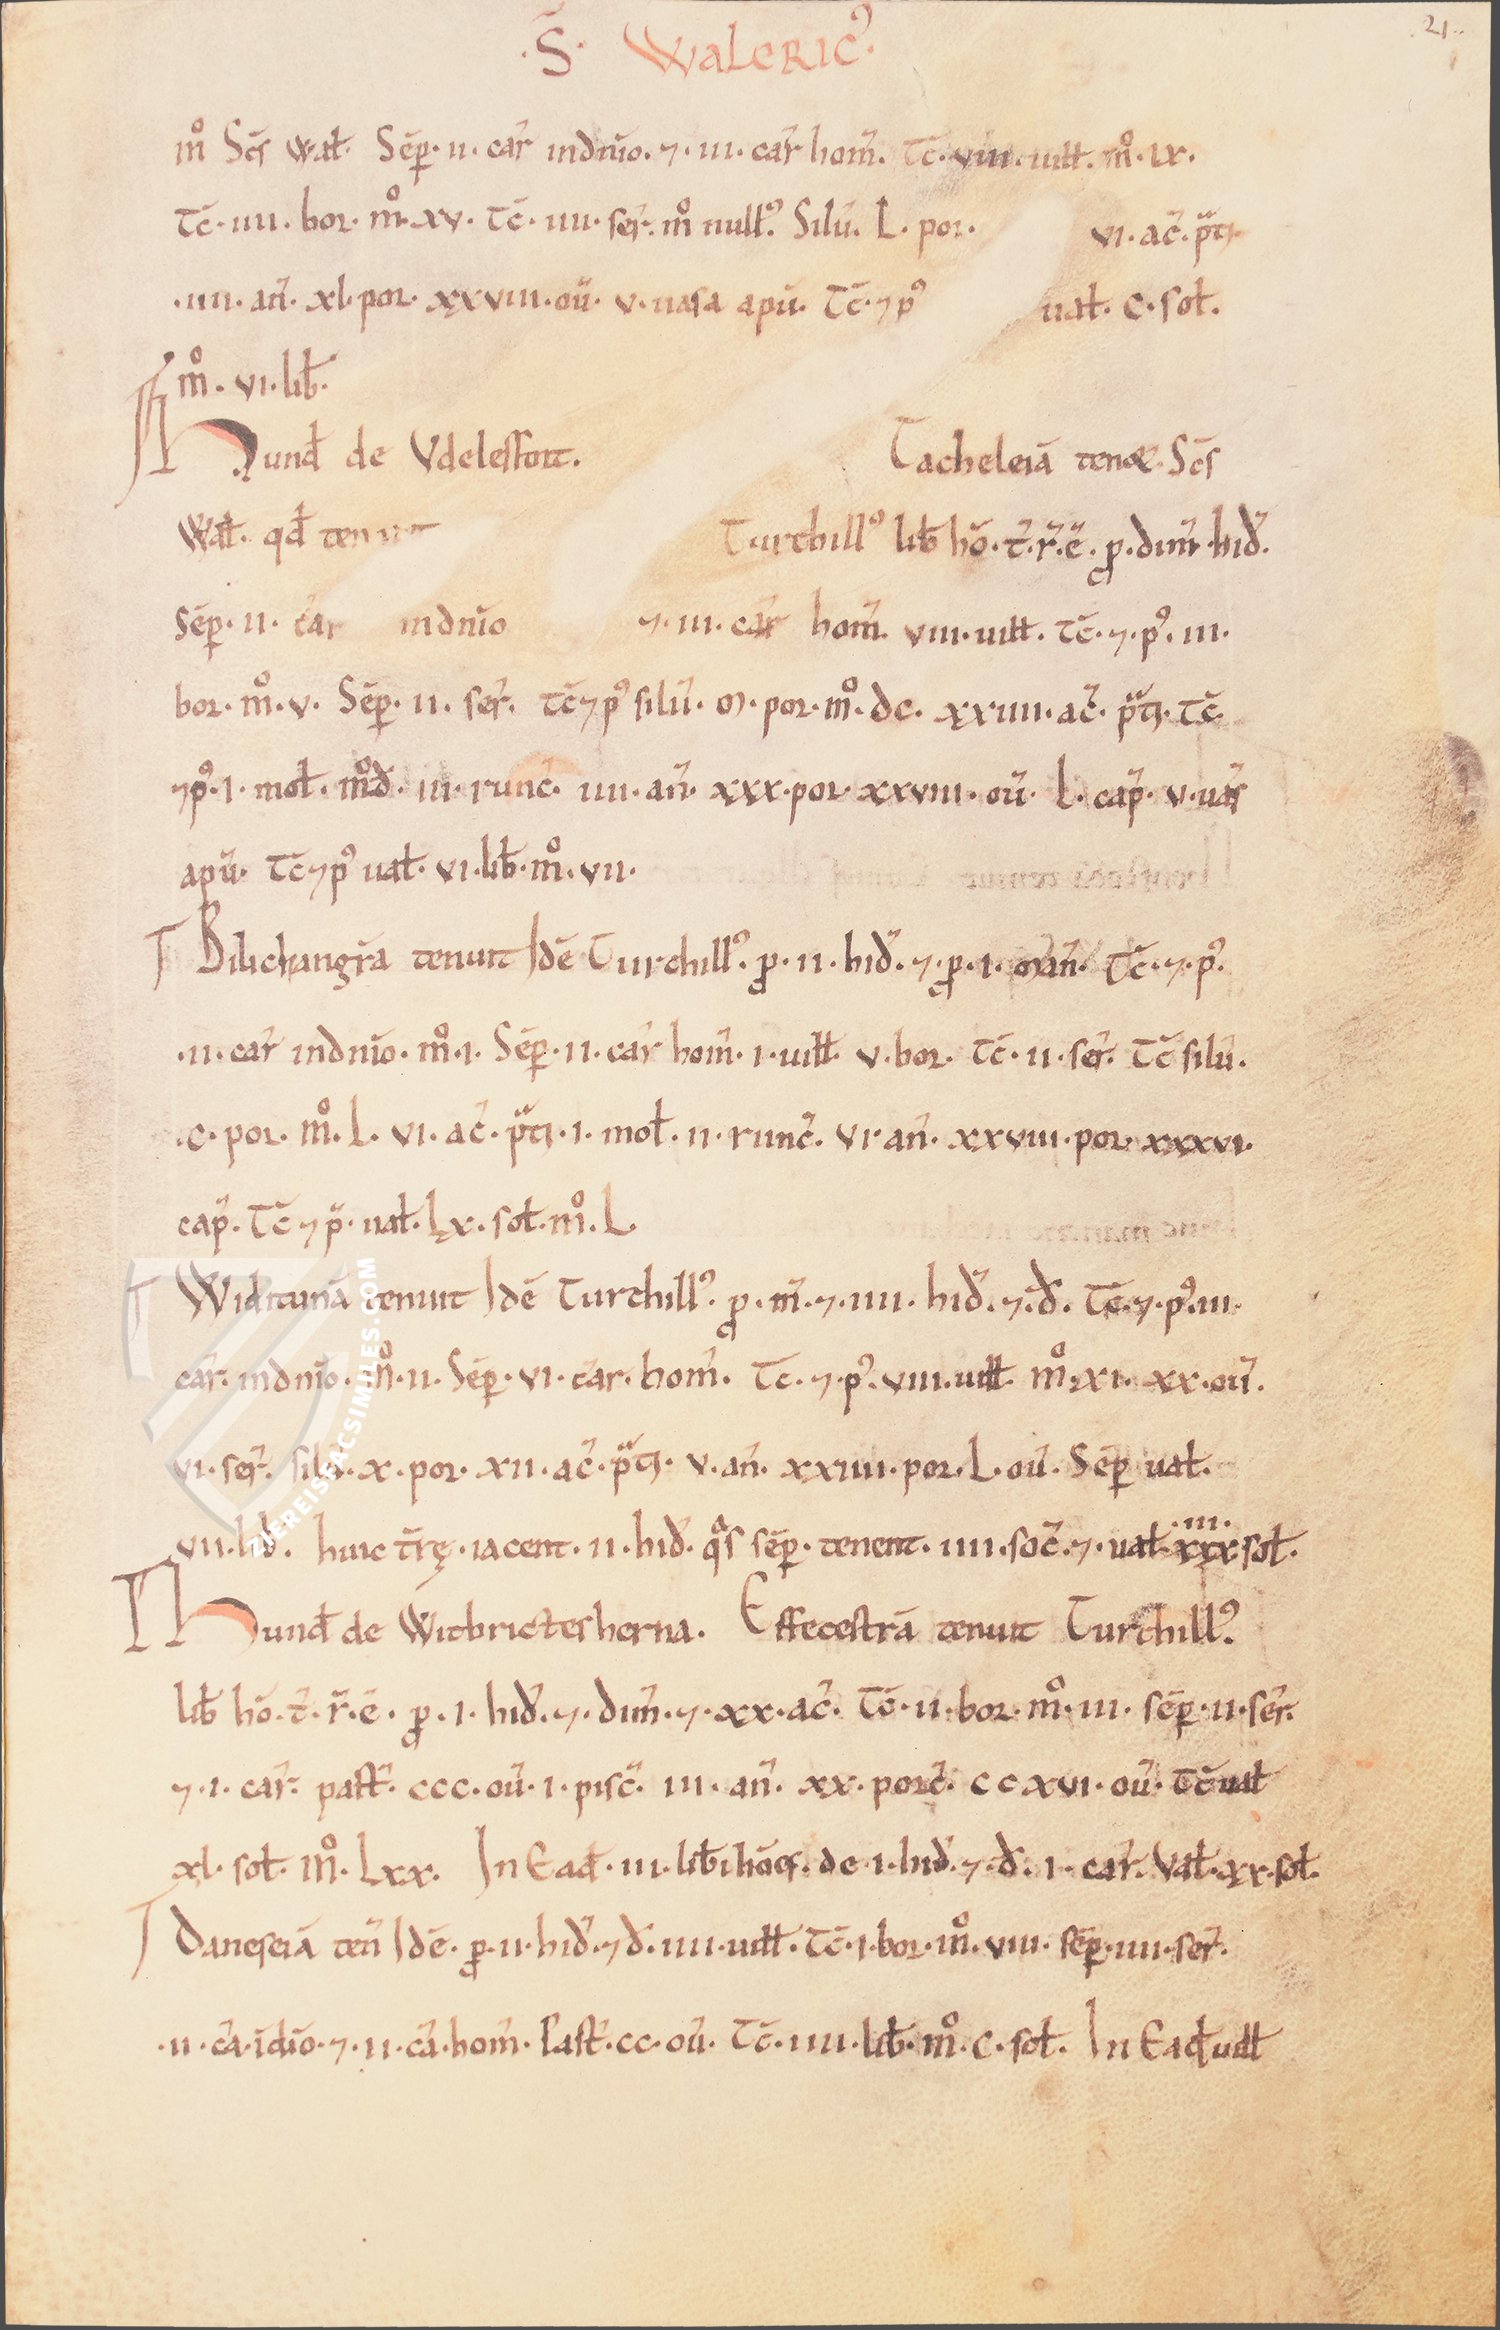 21
·S̄· WALERIC⁹·
m̊ Sc̄s wal̄. Sēp·ii·car̄ indn̄io·⁊·iii·car̄ hom̄. Tc̄·viii·uill̄. m̊·ix·
Tc̄·iiii·bor·m̊·xv·Tc̄·iiii·ser̄. m̊ null⁹. Silū. L·por· vi·ac̄·p̄ti·
·iiii·an̄·xl·por·xxviii·oū·v·uasa apū. Tc̄·⁊p⁹ ual̄·c·sol̄.
m̊·vi·lib̄.
Hund̄ de Vdelesfort. Tacheleiā ten& Sc̄s
Wal̄. qd̄ tenuit Turchill⁹ lib̄ hō·t̄·r̄·ē·ꝓ·dim̄·hid̄.
Sēp·ii·car̄ indn̄io ⁊·iii·car̄ hom̄. viii·uill̄. Tc̄·⁊·p⁹·iii·
bor·m̊·v·Sēp·ii·ser̄. Tc̄⁊p⁹ silū·ꝏ·por·m̊·dc·xxiiii·ac̄·p̄ti·Tc̄
⁊p⁹·i·mol̄. m̊ð·iii·runc̄. iiii·an̄·xxx·por·xxviii·oū· L·cap̄·v·uas̄
apū. Tc̄⁊p⁹ ual̄·vi·lib̄·m̊·vii·
Bilichangrā tenuit Idē Turchill⁹·ꝓ·ii·hid̄·⁊·ꝓ·i·man̄. Tc̄·⁊·p⁹·
·ii·car̄ indn̄io·m̊·i·Sēp·ii·car̄ hom̄·i·uill̄·v·bor·Tc̄·ii·ser̄. Tc̄ silū.
·c·por·m̊·L·vi·ac̄·p̄ti·i·mol̄·ii·runc̄·vi·an̄·xxviii·por·xxxvi·
cap̄. Tc̄⁊p̄·ual̄·Lx·sol̄·m̊·L·
Widitunā tenuit Idē Turchill⁹·ꝓ·m̄·⁊·iiii·hid̄·⁊·ð. Tc̄·⁊·p⁹·iii·
car̄·indn̄io·m̊·ii·Sēp·vi·car·hom̄. Tc̄·⁊·p⁹·viii·uill̄ m̊·xi·xx·oū·
vi·ser̄. silū·x·por·xii·ac̄·p̄ti·v·an̄·xxiiii·por·L·oū·Sēp ual̄.
vii·lib̄. huic tr̄ę·iacent·ii·hid̄·qᵃs sēp·tenent·iiii·soc̄·⁊·ual̄·xxx·iii·sol̄.
Hund̄ de Witbrictesherna. Effecestrā tenuit Turchill⁹.
lib̄ hō·t̄·r̄·ē·ꝓ·i·hid̄·⁊·dim̄·⁊·xx·ac̄. Tc̄·ii·bor·m̊·iii·sēp·ii·ser̄.
⁊·i·car̄. past̄·ccc·oū·i·pisc̄·iii·an̄·xx·porc̄·ccxvi·oū·Tc̄ ual̄
xl·sol̄·m̊·Lxx· In Ead̄·iii·lib̄i hōes·de·i·hid̄·⁊·ð·i·car̄. Val̄·xx·sol̄.
Daneseiā ten̄ Idē·ꝓ·ii·hid̄·⁊ð·iiii·uill̄·Tc̄·i·bor·m̊·viii·sēp·iiii·ser̄.
·ii·cā·īdīo·⁊·ii·cā·hom̄. Past̄·cc·oū. Tc̄·iiii·lib̄·m̊·c·sol̄. In Ead̄ uill̄
ZIEREISFACSIMILES.COM